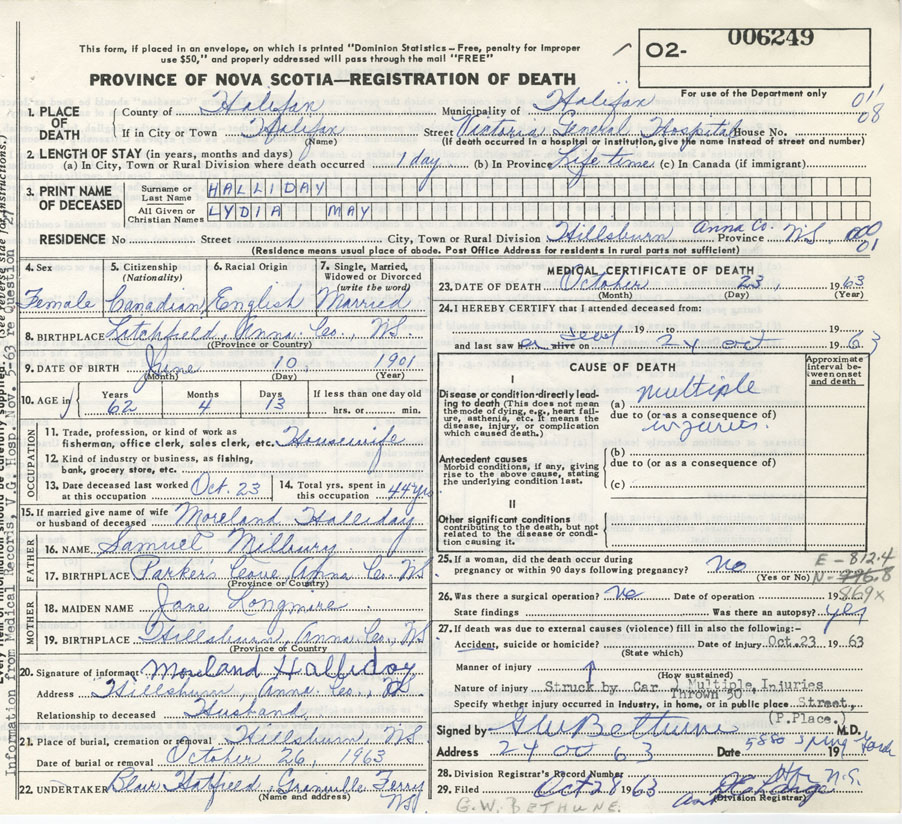 006249
O2-
This form, if placed in an envelope, on which is printed "Dominion Statistics—Free, penalty for Improper
use $50," and properly addressed will pass through the mail "FREE"
PROVINCE OF NOVA SCOTIA—REGISTRATION OF DEATH
For use of the Department only
1. PLACE OF DEATH County of Halifax Municipality of Halifax 01
08
If in City or Town Halifax Street Victoria General Hospital House No.
(Name) (If death occurred in a hospital or institution, give the name instead of street and number)
2. LENGTH OF STAY (in years, months and days)
(a) In City, Town or Rural Division where death occurred 1 day (b) In Province Life time (c) In Canada (if immigrant)
3. PRINT NAME OF DECEASED Surname or Last Name HALLIDAY
All Given or Christian Names LYDIA MAY
RESIDENCE No Street City, Town or Rural Division Hillsburn Anna Co. Province NS 01
(Residence means usual place of abode. Post Office Address for residents in rural parts not sufficient)
4. Sex Female
5. Citizenship (Nationality) Canadian
6. Racial Origin English
7. Single, Married, Widowed or Divorced (write the word) Married
8. BIRTHPLACE Litchfield, Anna. Co., NS
(Province or Country)
9. DATE OF BIRTH June 10, 1901
(Month) (Day) (Year)
10. AGE in Years 62 Months 4 Days 13 If less than one day old hrs. or min.
OCCUPATION
11. Trade, profession, or kind of work as fisherman, office clerk, sales clerk, etc. Housewife
12. Kind of industry or business, as fishing, bank, grocery store, etc.
13. Date deceased last worked at this occupation Oct. 23
14. Total yrs. spent in this occupation 44 yrs
15. If married give name of wife or husband of deceased Moreland Halliday
FATHER
16. NAME Samuel Milbury
17. BIRTHPLACE Parker's Cove, Anna Co. NS
(Province or Country)
MOTHER
18. MAIDEN NAME Jane Longmire
19. BIRTHPLACE Hillsburn, Anna. Co., NS
Province or Country
20. Signature of informant Moreland Halliday
Address Hillsburn, Anna. Co.,
Relationship to deceased Husband
21. Place of burial, cremation or removal Hillsburn, NS
Date of burial or removal October 26, 1963
22. UNDERTAKER Blair Hatfield, Granville Ferry NS.
(Name and address)
MEDICAL CERTIFICATE OF DEATH
23. DATE OF DEATH October 23, 1963
(Month) (Day) (Year)
24. I HEREBY CERTIFY that I attended deceased from:
19 to 19
and last saw h alive on dead 24 oct 1963
CAUSE OF DEATH
Approximate interval between onset and death
I
Disease or condition directly leading to death (This does not mean the mode of dying, e.g., heart failure, asthenia, etc. It means the disease, injury, or complication which caused death.)
(a) multiple
due to (or as a consequence of) injuries.
Antecedent causes
Morbid conditions, if any, giving rise to the above cause, stating the underlying condition last.
(b)
due to (or as a consequence of)
(c)
II
Other significant conditions
contributing to the death, but not related to the disease or condition causing it.
25. If a woman, did the death occur during pregnancy or within 90 days following pregnancy? No
(Yes or No)
E-812.4
N-996.8
869x
26. Was there a surgical operation? No Date of operation 19
State findings Was there an autopsy? yes
27. If death was due to external causes (violence) fill in also the following:-
Accident, suicide or homicide? Date of injury Oct.23 1963
(State which)
Manner of injury
(How sustained)
Nature of injury Struck by Car Multiple Injuries
Thrown 50'
Specify whether injury occurred in Industry, in home, or in public place Street,
(P.Place.)
Signed by G W Bethune M.D.
Address 24 oct 63 Date 5880 Spring Garden 19
Hfx N.S.
28. Division Registrar's Record Number
29. Filed Oct 28 1963
(Division Registrar)
G.W. BETHUNE.
Information from Medical Records, V.G. Hosp. Nov. 7-63 re Question 27